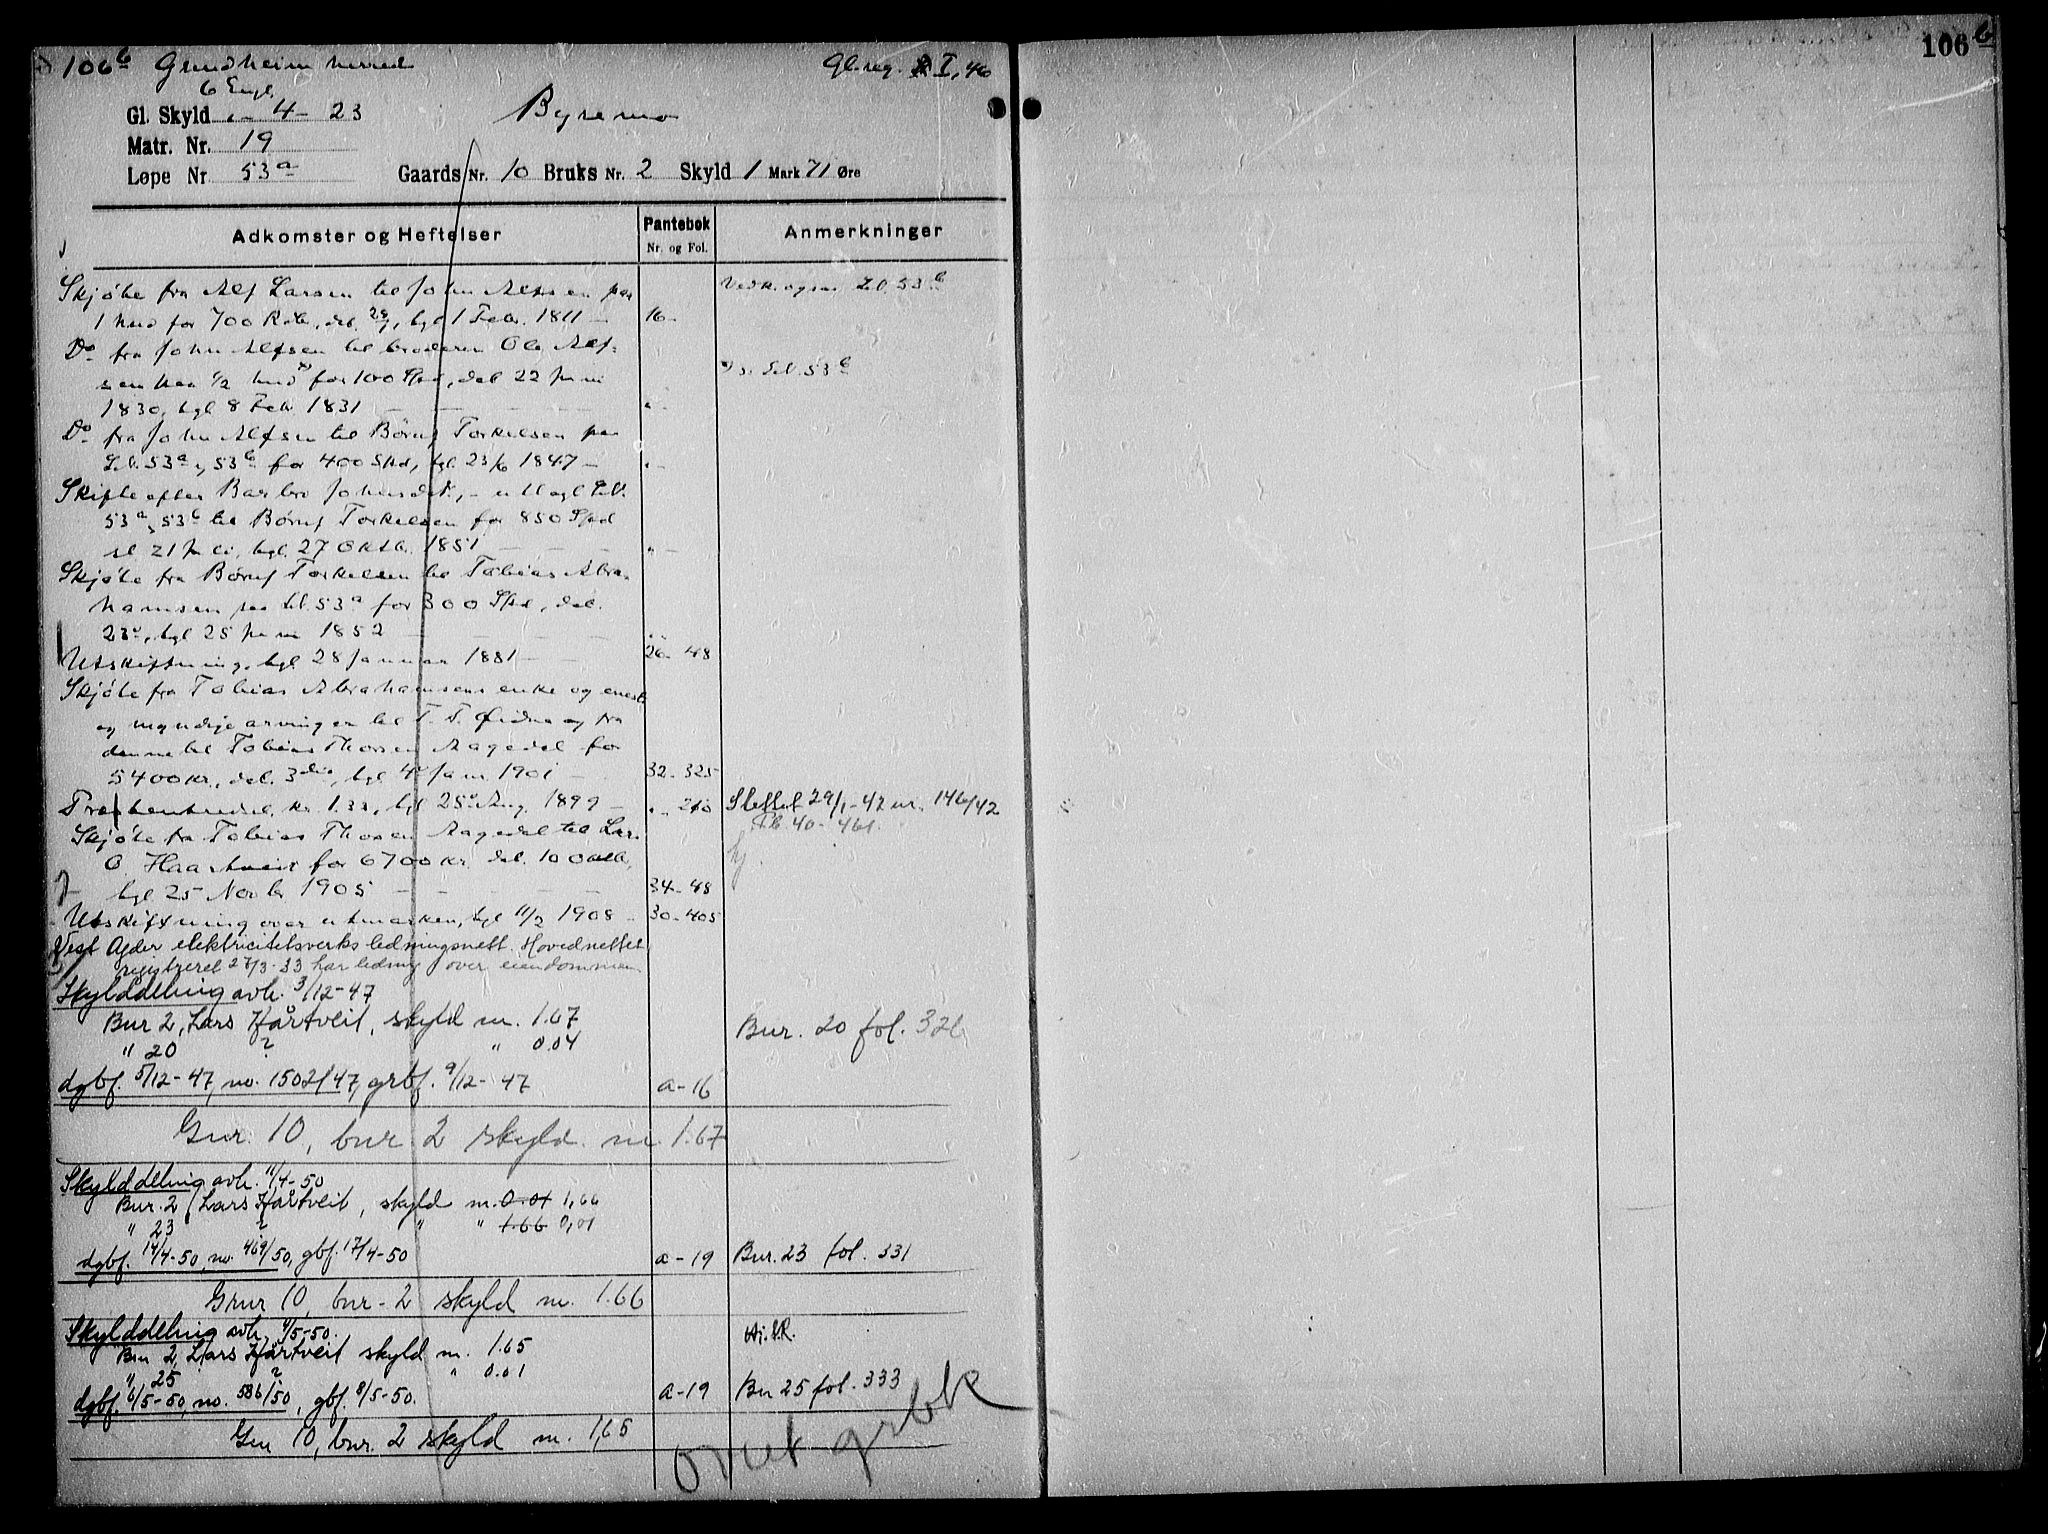 106 b Grindheim herred
Gl. reg. I, 46
106 b
6 Engl.
Gl. Skyld „ - 4 - 23
Byremo
Matr. Nr. 19
Løpe Nr 53 a
Gaards Nr. 10 Bruks Nr. 2 Skyld 1 Mark 71 Øre
Adkomster og Heftelser
Pantebok
Nr. og Fol.
Anmerkninger
Skjøte fra Alf Larsen til John Alfsen paa
Vedk. ogsaa L.b. 53 b
1 hud for 700 Rdr., dat. , tgl 1 Febr. 1811 —
16 -
Do fra John Alfsen til broderen Ole Alf-
sen paa 1/2 hud for 100 Spd, dat 22 Juni
L.b. 53 b
1830, tgl 8 Febr 1831 — — — —
„ -
Do fra John Alfsen til Børuf Torkelsen paa
L.b. 53 a og 53 b for 400 Spd, tgl. 23/6 1847 —
„ -
Skifte efter Barbro Johnsdtr, - utlagt L.b.
53 a, 53 b til Børuf Torkelsen for 850 Spd
sl 21 Juli, tgl. 27 Oktbr. 1851 — — —
„ -
Skjøte fra Børuf Torkelsen til Tobias Abra-
hamsen paa L.b. 53 a for 300 Spd, dat.
23 , tgl 25 Juni 1852 — — — —
„ -
Utskiftning, tgl. 28 Januar 1881 — —
26 - 48
Skjøte fra Tobias Abrahamsens enke og eneste
og myndige arvinger til T. T. Øidne og fra
denne til Tobias Thorsen Aagedal for
5400 kr., dat. 3 die, tgl 4 Jan. 1901 —
32 - 325
kr. 1.33, tgl 25 Aug. 1899 —
„ - 210
Slettet 29/1 - 42 nr. 146/42
Pb. 40 - 461.
Skjøte fra Tobias Thorsen Aagedal til Lars
O. Haartveit for 6700 kr. dat. 10 Oktb.,
tgl 25 Novbr 1905 — — — —
34 - 48
Utskiftning over utmarken, tgl 11/2 1908 -
30 - 405
Vest Agder elektricitetsverks ledningsnett. Hovednettet
registreret 27/3 - 33 har ledning over eiendommen
Skylddeling avh. 3/12 - 47
Bnr 2, Lars Hårtveit, skyld m. 1.67
Bnr. 20 fol. 326
" 20 ? " 0.04
dgbf. 5/12 - 47, no. 1502/47, grbf. 9/12 - 47
a - 16
Gnr. 10, bnr 2 skyld m. 1.67
Skylddeling avh. 11/4 - 50
Bnr. 2 (Lars Hårtveit, skyld m. 0.01 1,66
" 23 ? " " 1.66 0,01
dgbf. 14/4 - 50, no. 469/50, gbf. 17/4 - 50
a - 19
Bnr. 23 fol. 331
Gnr 10, bnr - 2 skyld m. 1.66
Skylddeling avh. 4/5 - 50.
Bnr 2, Lars Hårtveit skyld m. 1.65
" 25 ? " 0.01
dgbf. 6/5 - 50, no. 586/50, gbf. 8/5 - 50.
a - 19
Bnr 25 fol. 333
Gnr 10, bnr. 2 skyld m. 1,65
grbk